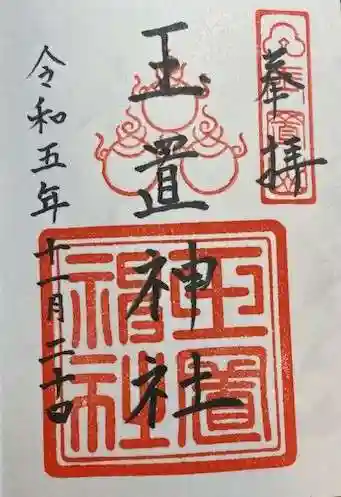 奉拝
玉置神社
令和五年十一月二十日
玉置
神社